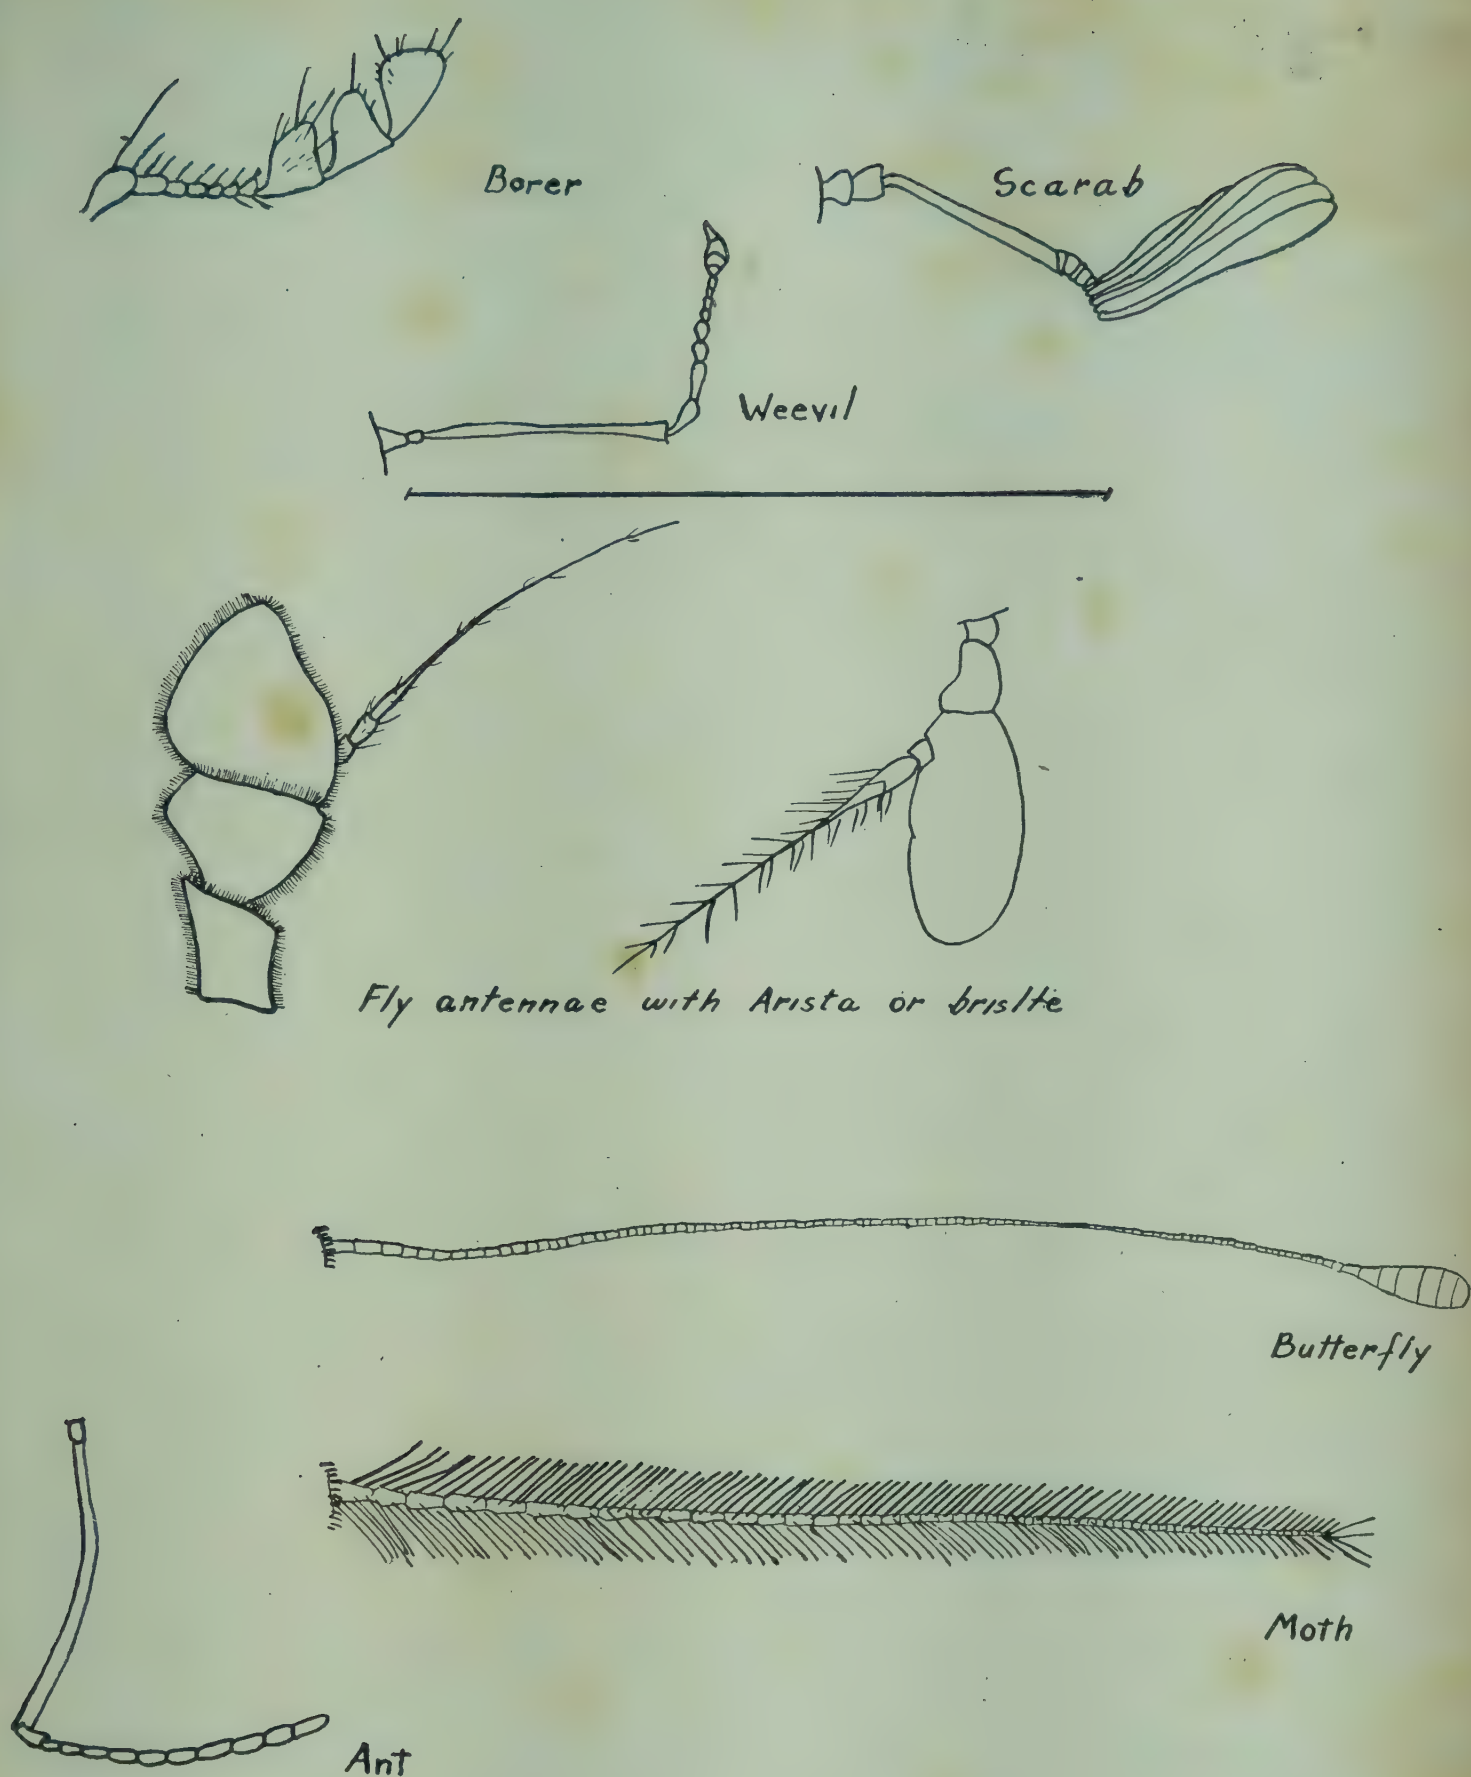 Borer
Scarab
Weevil
Fly antennae with Arista or brislte
Butterfly
Moth
Ant